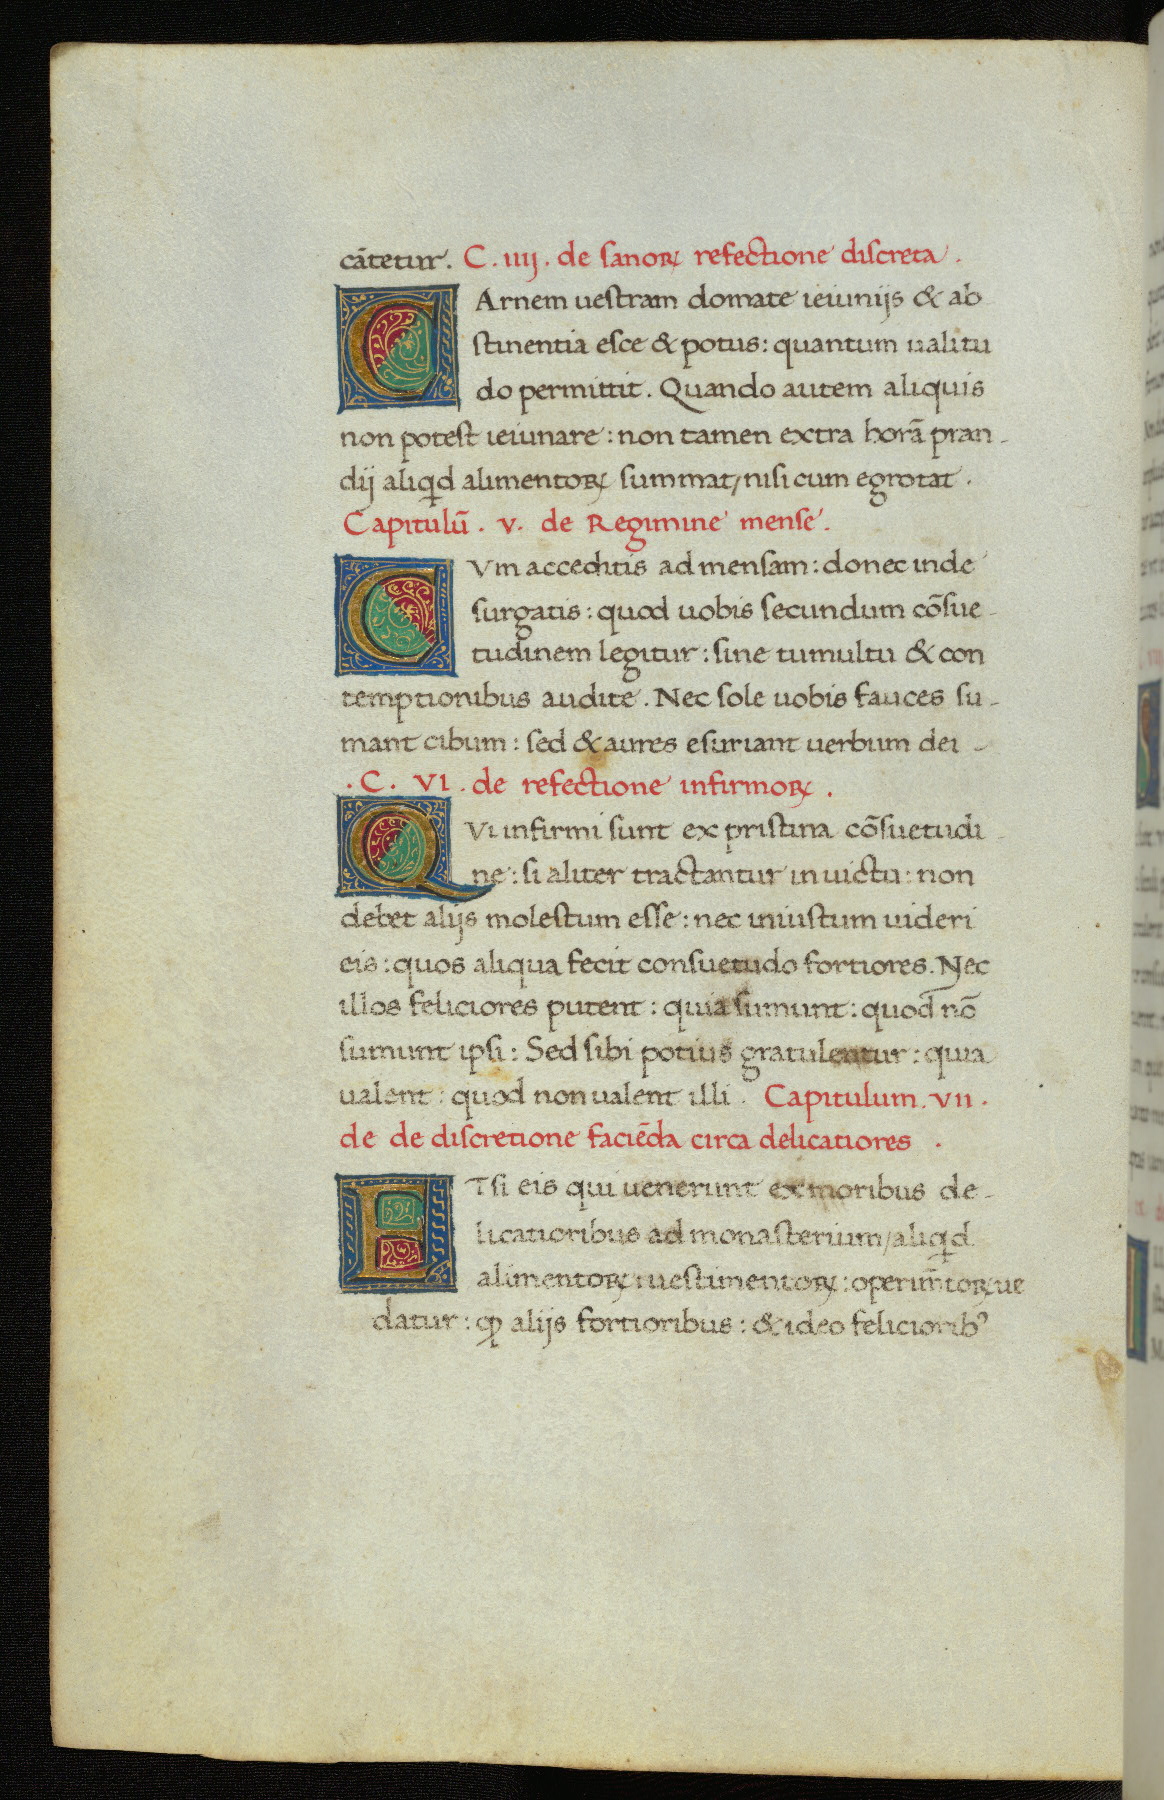 cātetur. C. iiij. de sanoꝝ refectione discreta.
CArnem uestram domate ieiunijs & ab
stinentia esce & potus: quantum ualitu
do permittit. Quando autem aliquis
non potest ieiunare: non tamen extra horā pran-
dij aliqid alimentoꝝ summat/nisi cum egrotat.
Capitulū. v. de Regimine mense.
CVm acceditis ad mensam: donec inde
surgatis: quod uobis secundum cōsue-
tudinem legitur: sine tumultu & con
temptionibus audite. Nec sole uobis fauces su-
mant cibum: sed & aures esuriant uerbum dei -
.C. VI. de refectione infirmoꝝ.
QVi infirmi sunt ex pristina cōsuetudi-
ne: si aliter tractantur in uictu: non
debet alijs molestum esse: nec iniustum uideri
eis: quos aliqua fecit consuetudo fortiores. Nec
illos feliciores putent: quia sumunt: quod nō
sumunt ipsi: Sed sibi potius gratulentur: quia
ualent: quod non ualent illi. Capitulum. vii.
de de discretione faciēda circa delicatiores.
ETsi eis qui uenerunt ex moribus de-
licatioribus ad monasterium/aliqid
alimentoꝝ: uestimentoꝝ: operim̄toꝝ ue
datur: ꝙ alijs fortioribus: & ideo felicioribꝰ